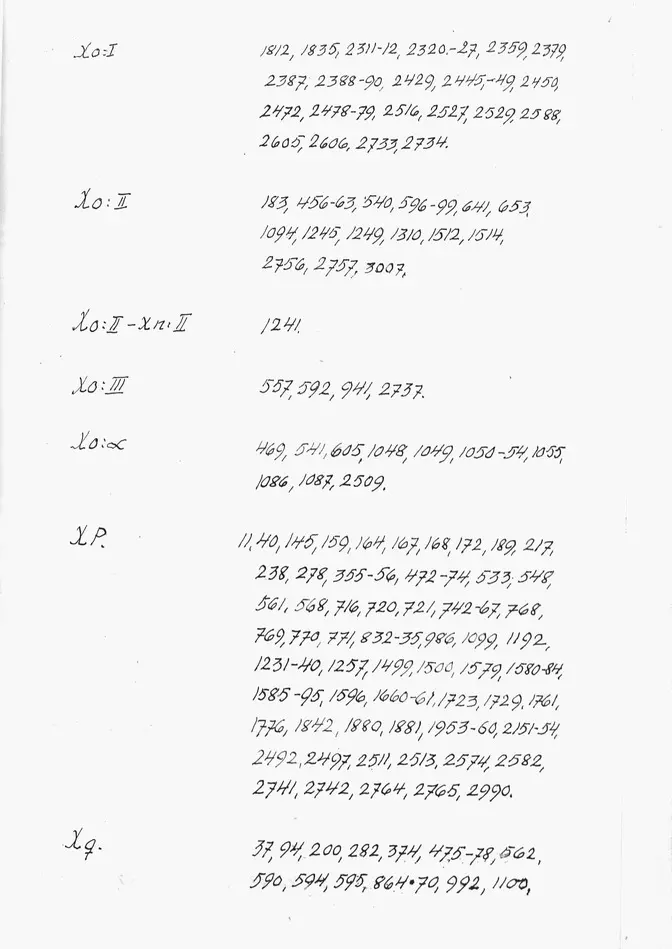 Xo:I 1812, 1835, 2311-12, 2320-27, 2359, 2379,
2387, 2388-90, 2429, 2445-49, 2450,
2472, 2478-79, 2516, 2527, 2529, 2588,
2605, 2606, 2733, 2734.
Xo:II 183, 456-63, 540, 596-99, 641, 653,
1094, 1245, 1249, 1310, 1512, 1514,
2756, 2757, 3007,
Xo:II-Xn:II 1241.
Xo:III 557, 592, 941, 2737.
Xo:∝ 469, 541, 605, 1048, 1049, 1050-54, 1055,
1086, 1087, 2509.
XP. 11, 40, 145, 159, 164, 167, 168, 172, 189, 217,
238, 278, 355-56, 472-74, 533, 548,
561, 568, 716, 720, 721, 742-67, 768,
769, 770, 771, 832-35, 986, 1099, 1192,
1231-40, 1257, 1499, 1500, 1579, 1580-84,
1585-95, 1596, 1660-61, 1723, 1729, 1761,
1776, 1842, 1880, 1881, 1953-60, 2151-54,
2492, 2497, 2511, 2513, 2574, 2582,
2741, 2742, 2764, 2765, 2990.
Xq. 37, 94, 200, 282, 374, 475-78, 562,
590, 594, 595, 864•70, 992, 1100,